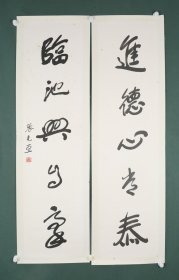 進德心常泰
臨池興自豪